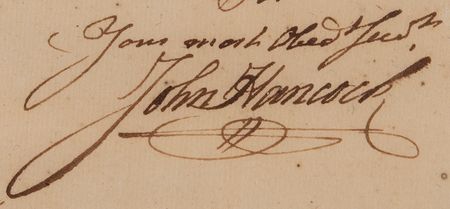 Your most Obedt Servt
John Hancock